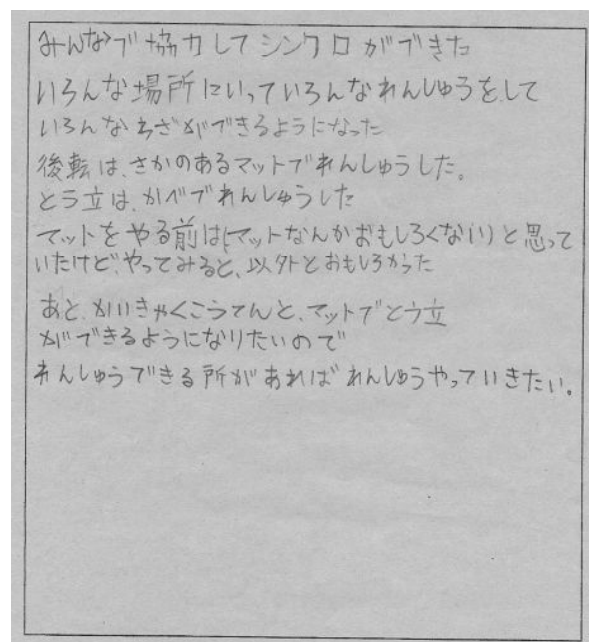 みんなで協力してシンクロができた
いろんな場所にいっていろんなれんしゅうをして
いろんなわざができるようになった
後転は、さかのあるマットでれんしゅうした。
とう立は、かべでれんしゅうした
マットをやる前は(マットなんかおもしろくない)と思って
いたけど、やってみると、以外とおもしろかった
あと、かいきゃくこうてんと、マットでとう立
ができるようになりたいので
れんしゅうできる所があればれんしゅうやっていきたい。